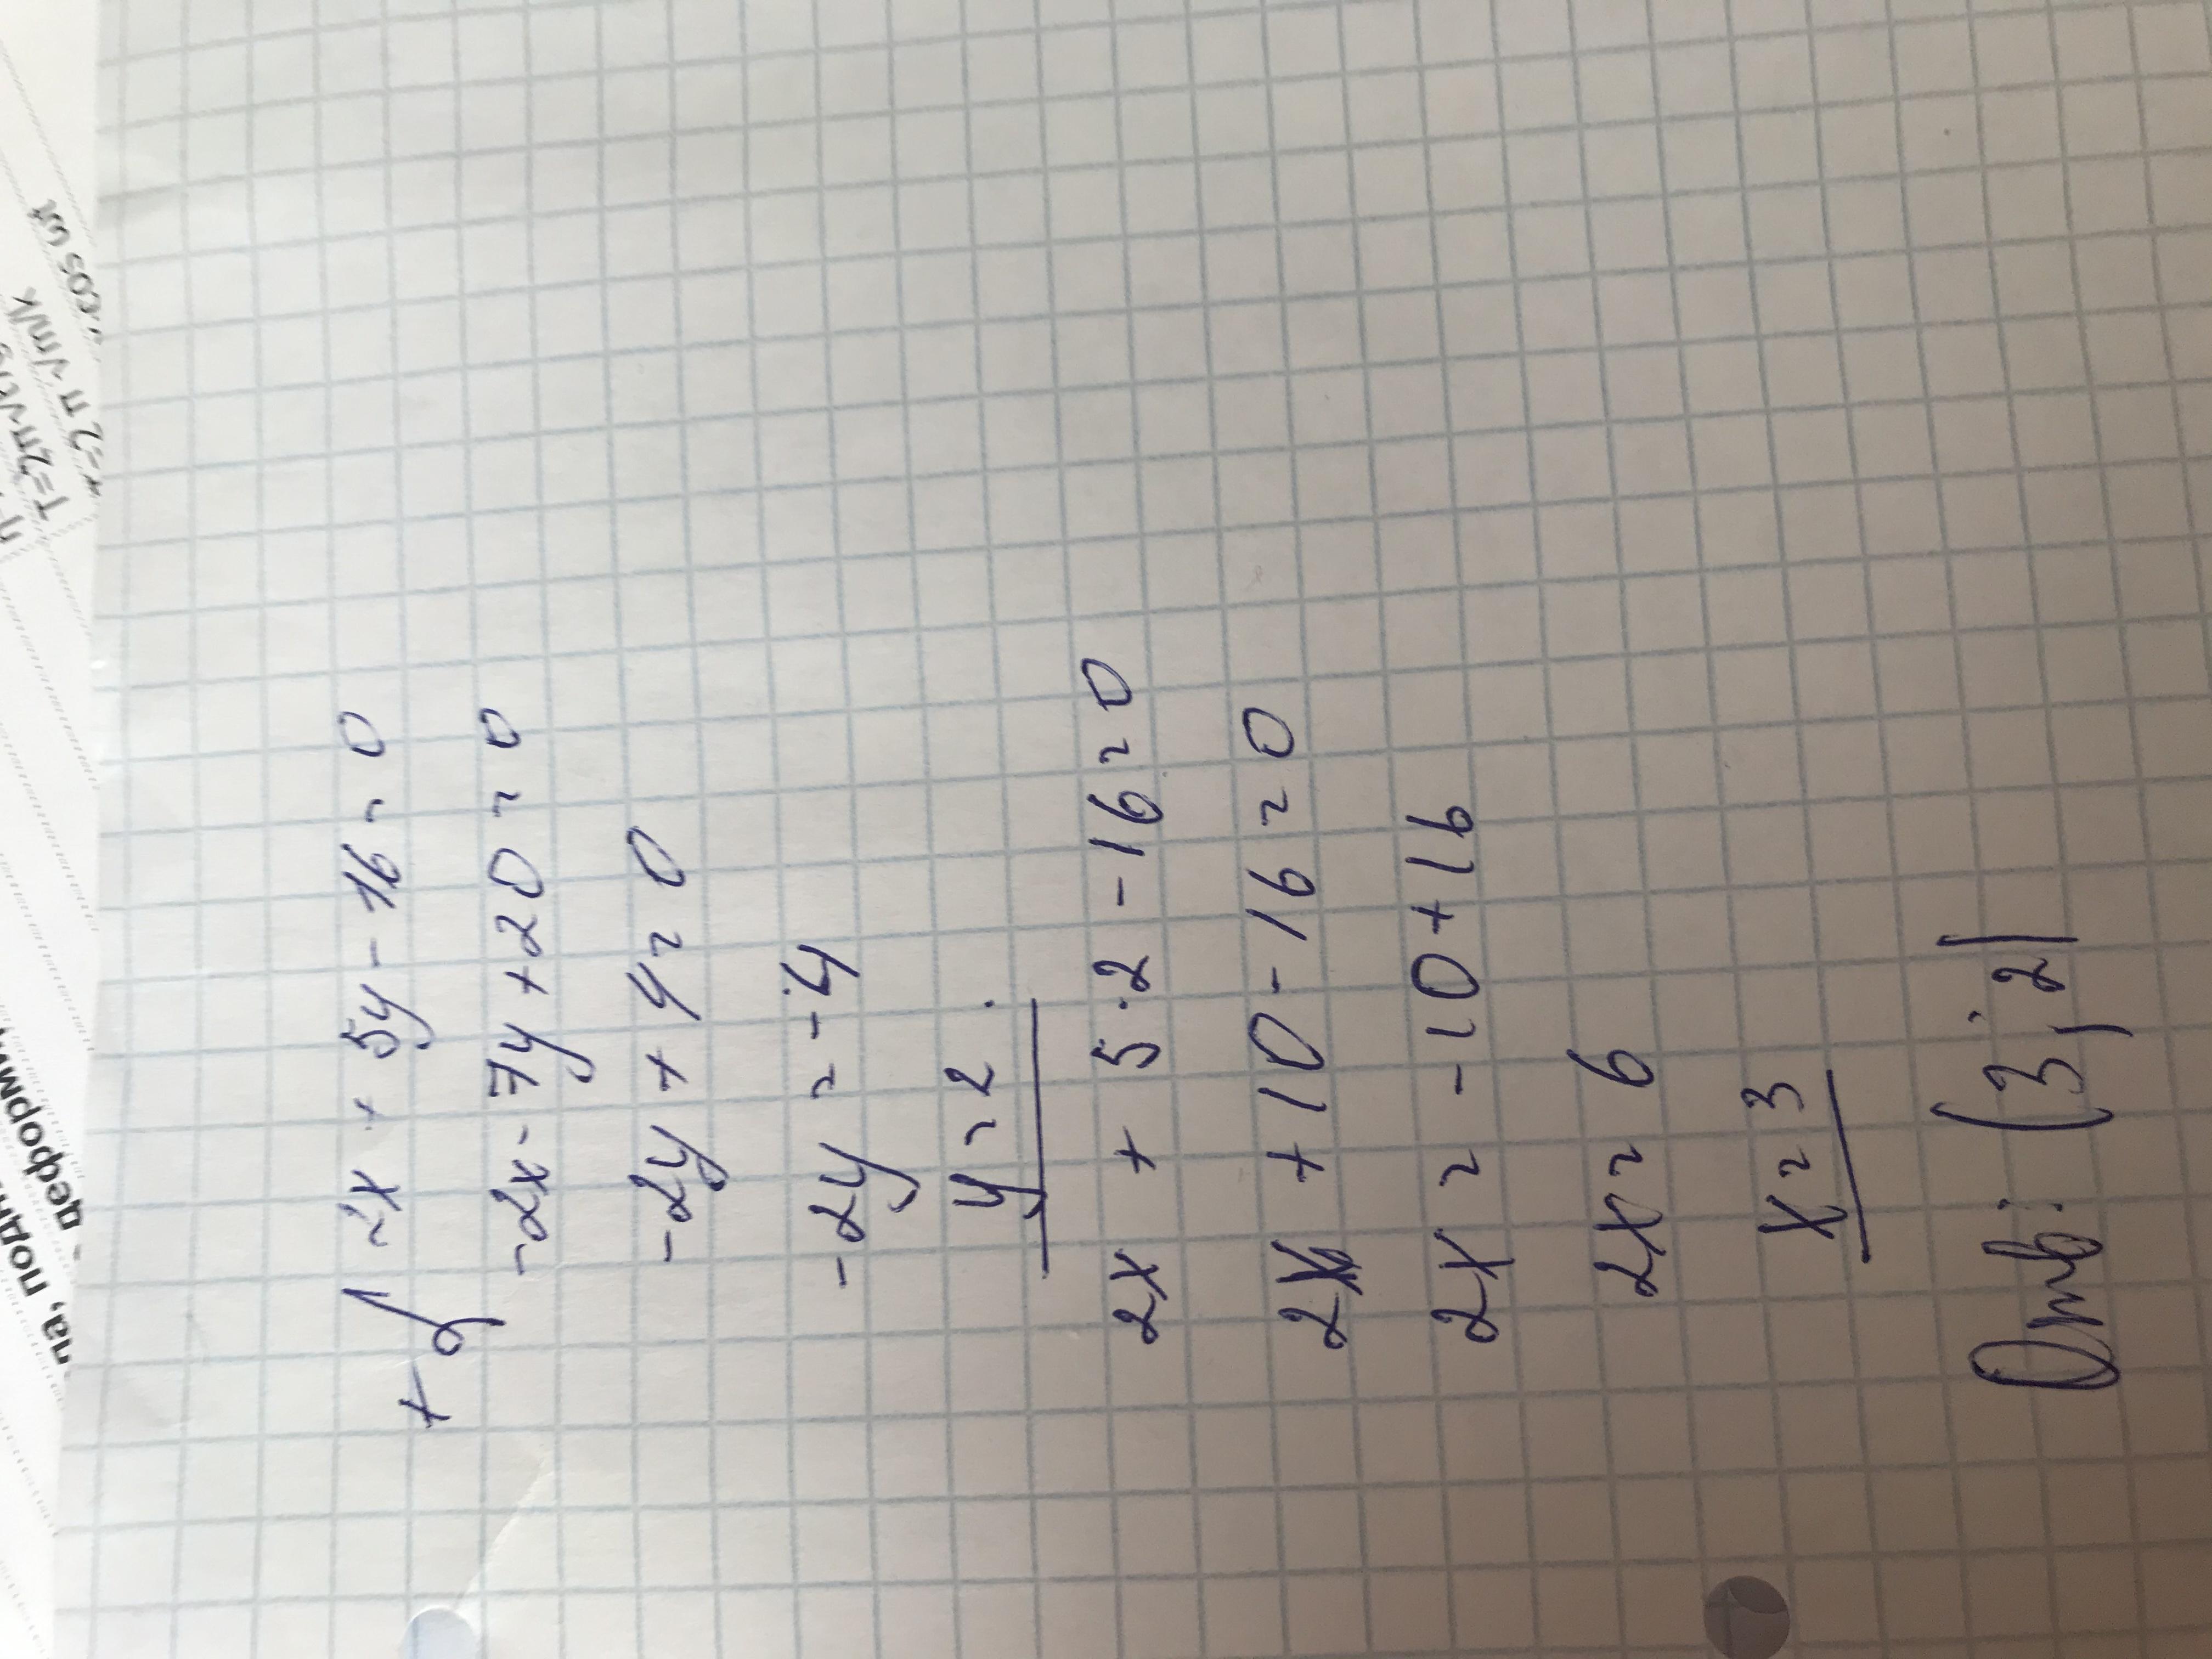 +{ 2x + 5y - 16 = 0
-2x - 7y + 20 = 0
-2y + 4 = 0
-2y = -4
y = 2
2x + 5·2 - 16 = 0
2x + 10 - 16 = 0
2x = -10 + 16
2x = 6
x = 3
Отв: (3; 2)
T=2π√
= 2 π √m/k
cos ωt
деформ
ла, подн